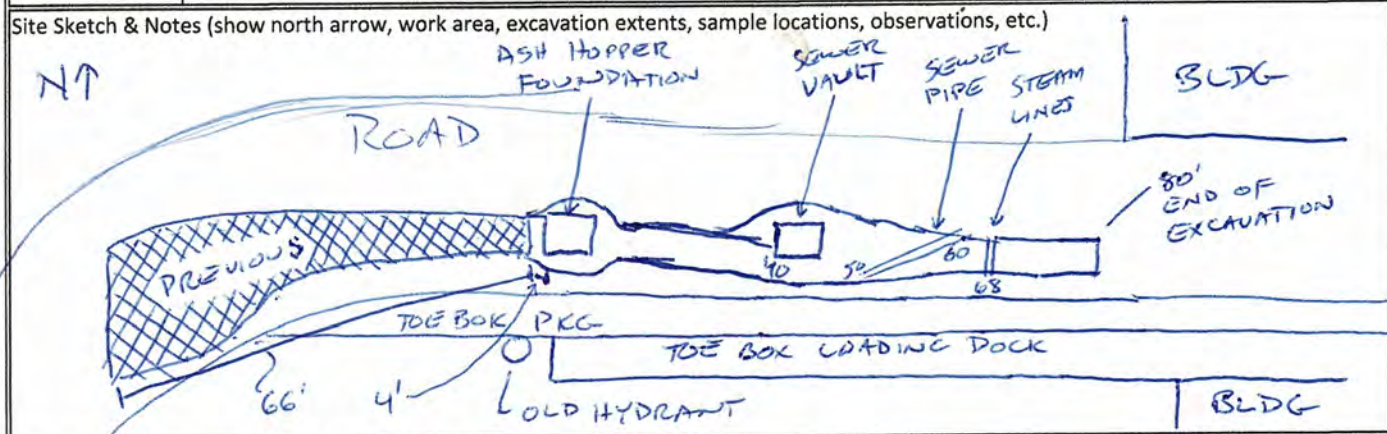 Site Sketch & Notes (show north arrow, work area, excavation extents, sample locations, observations, etc.)
N↑
ASH HOPPER
FOUNDIATION
SEWER
VAULT
SEWER
PIPE
STEAM
LINES
BLDG
ROAD
80'
END OF
EXCAVATION
PREVIOUS
40
50
60
68
TOE BOX PKG
TOE BOX LOADING DOCK
66'
4'
OLD HYDRANT
BLDG